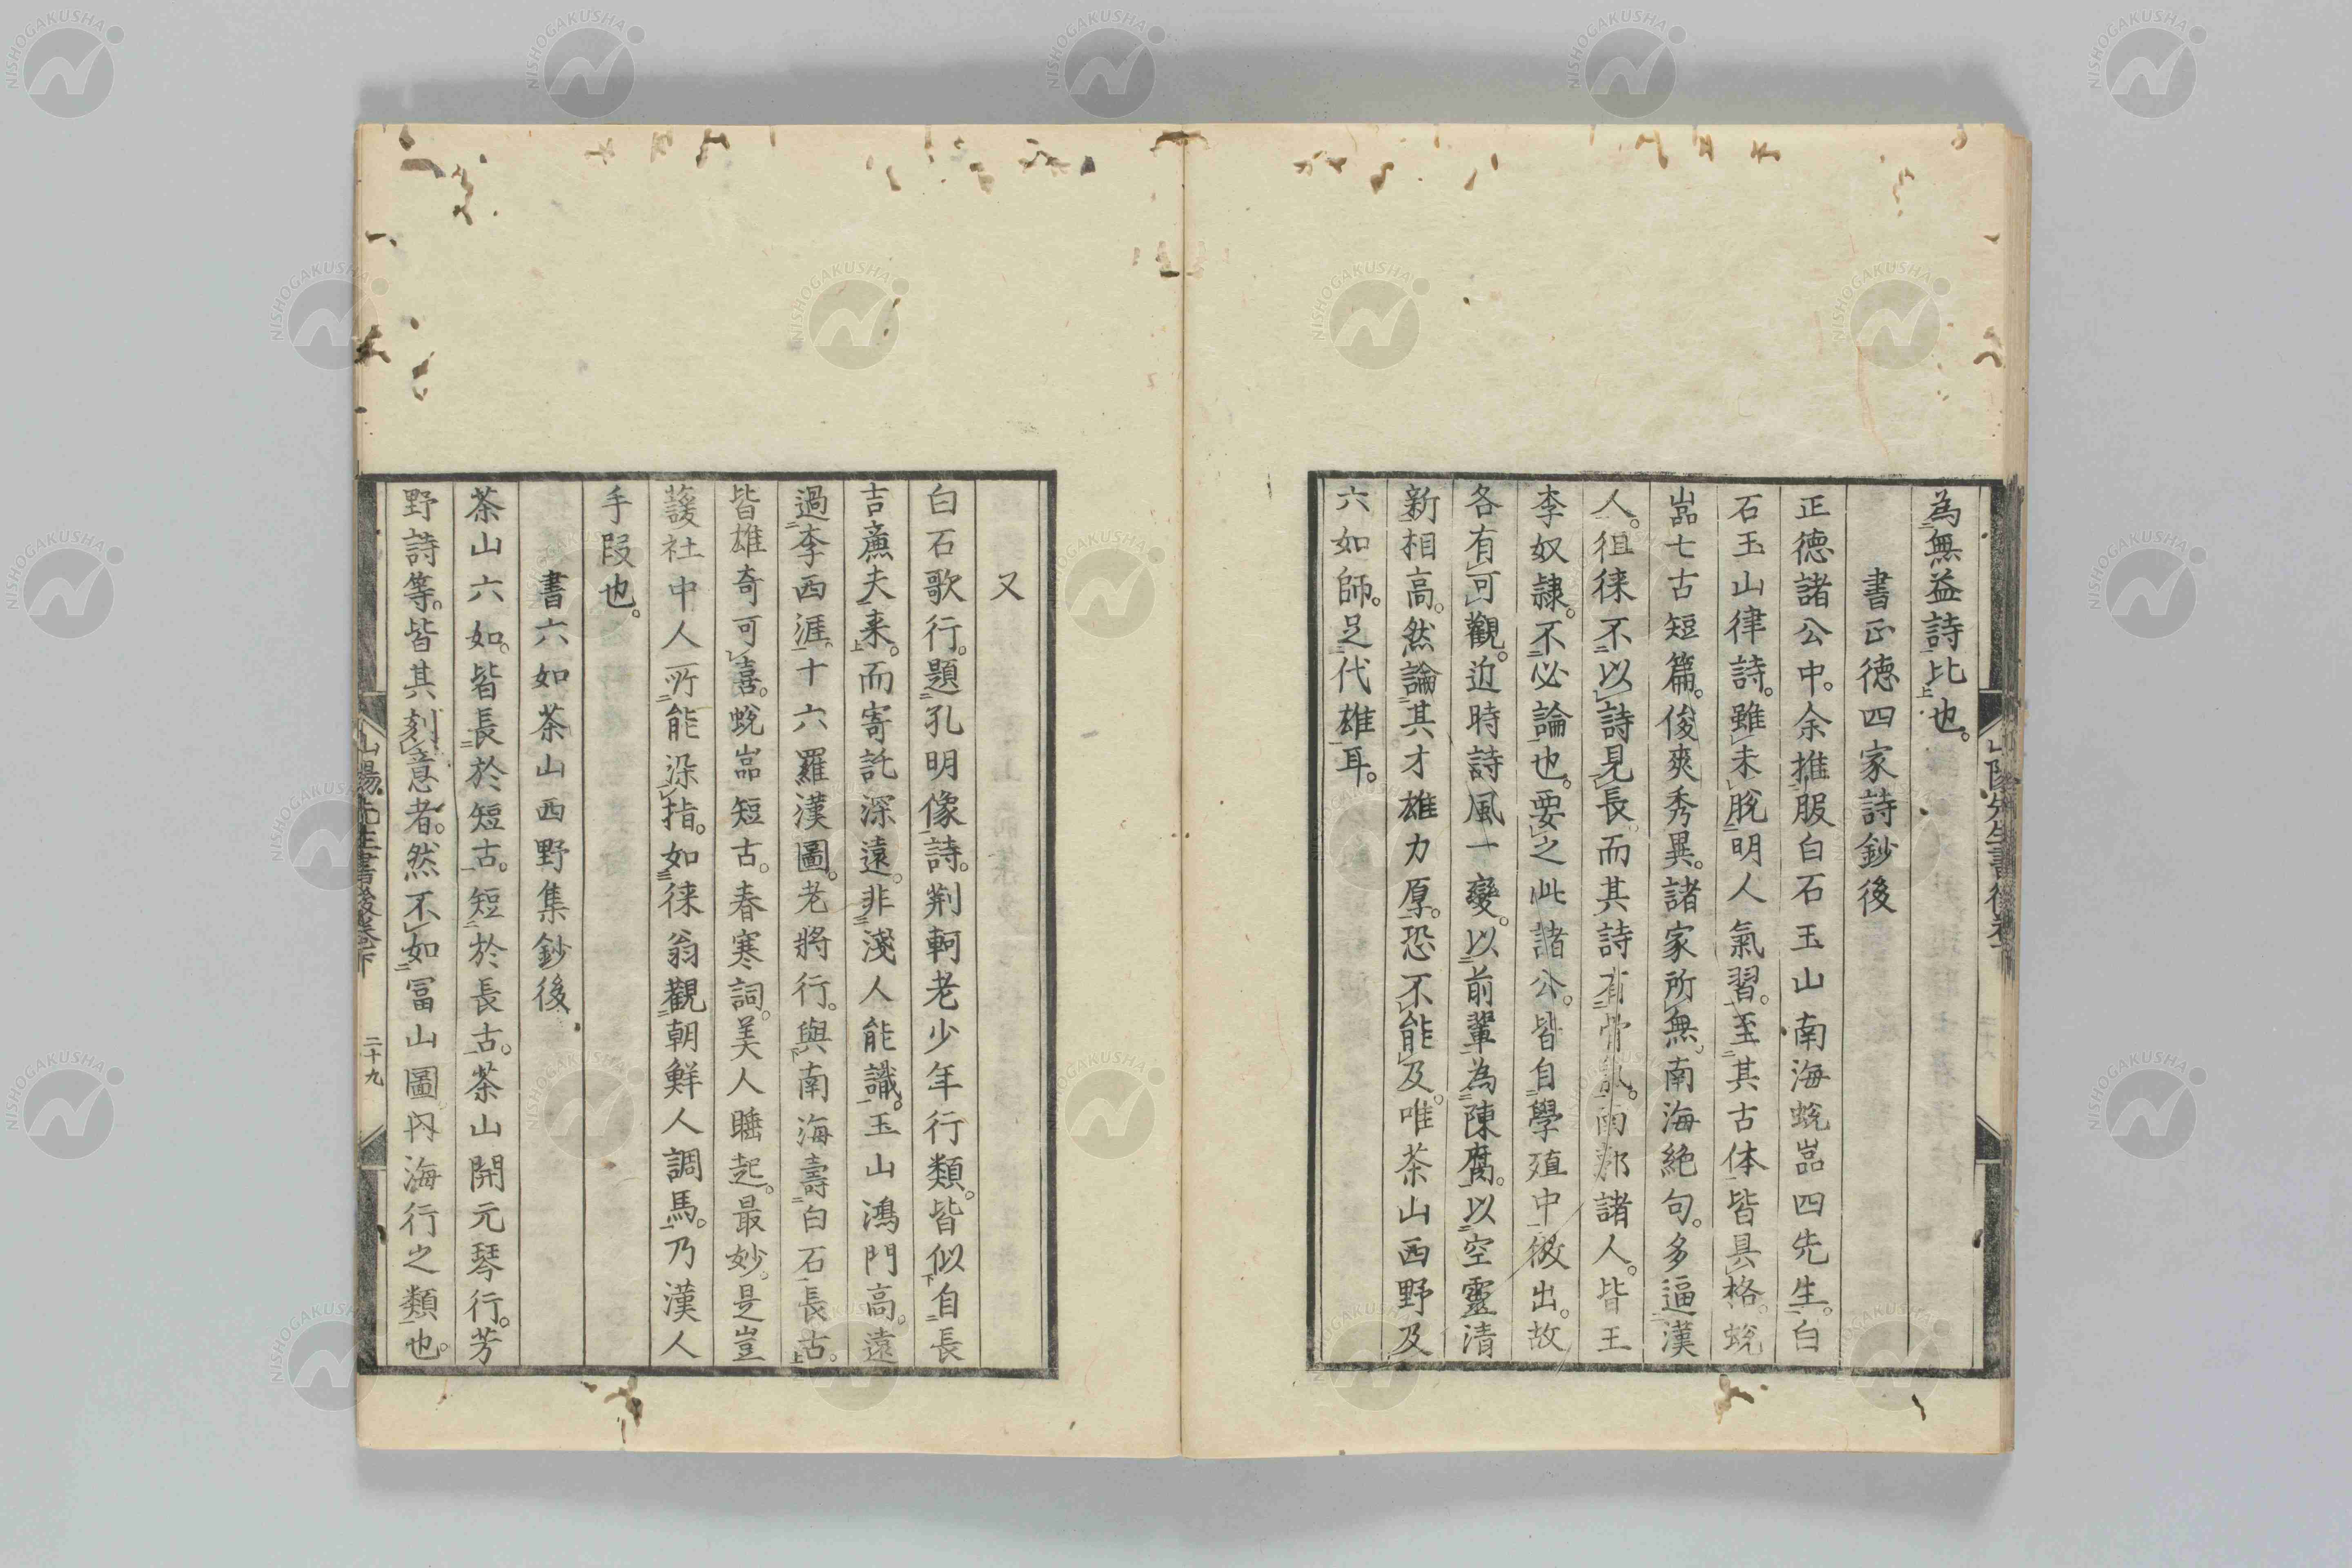 為無益詩比也。
書正德四家詩鈔後
正德諸公中。余推服白石玉山南海蛻嵓四先生。白
石玉山律詩。雖未脫明人氣習。至其古体皆具格。蛻
嵓七古短篇。俊爽秀異。諸家所無。南海絕句。多逼漢
人。徂徠不以詩見長。而其詩有骨氣。南郭諸人。皆王
李奴隷。不必論也。要之此諸公。皆自學殖中發出。故
各有可觀。近時詩風一變。以前輩為陳腐。以空靈清
新相高。然論其才雄力厚。恐不能及。唯茶山西野及
六如師。足代雄耳。
又
白石歌行。題孔明像詩。荊軻老少年行類。皆似自長
吉廉夫来。而寄託深遠。非淺人能識。玉山鴻門高。遠
過李西涯。十六羅漢圖。老將行。與南海壽白石長古。
皆雄奇可喜。蛻嵓短古。春寒詞。美人睡起。最妙。是豈
蘐社中人所能染指。如徠翁觀朝鮮人調馬。乃漢人
手段也。
書六如茶山西野集鈔後
茶山六如。皆長於短古。短於長古。茶山開元琴行。芳
野詩等。皆其刻意者。然不如冨山圖內海行之類也。
山陽先生書後卷下
二十九
NISHOGAKUSHA